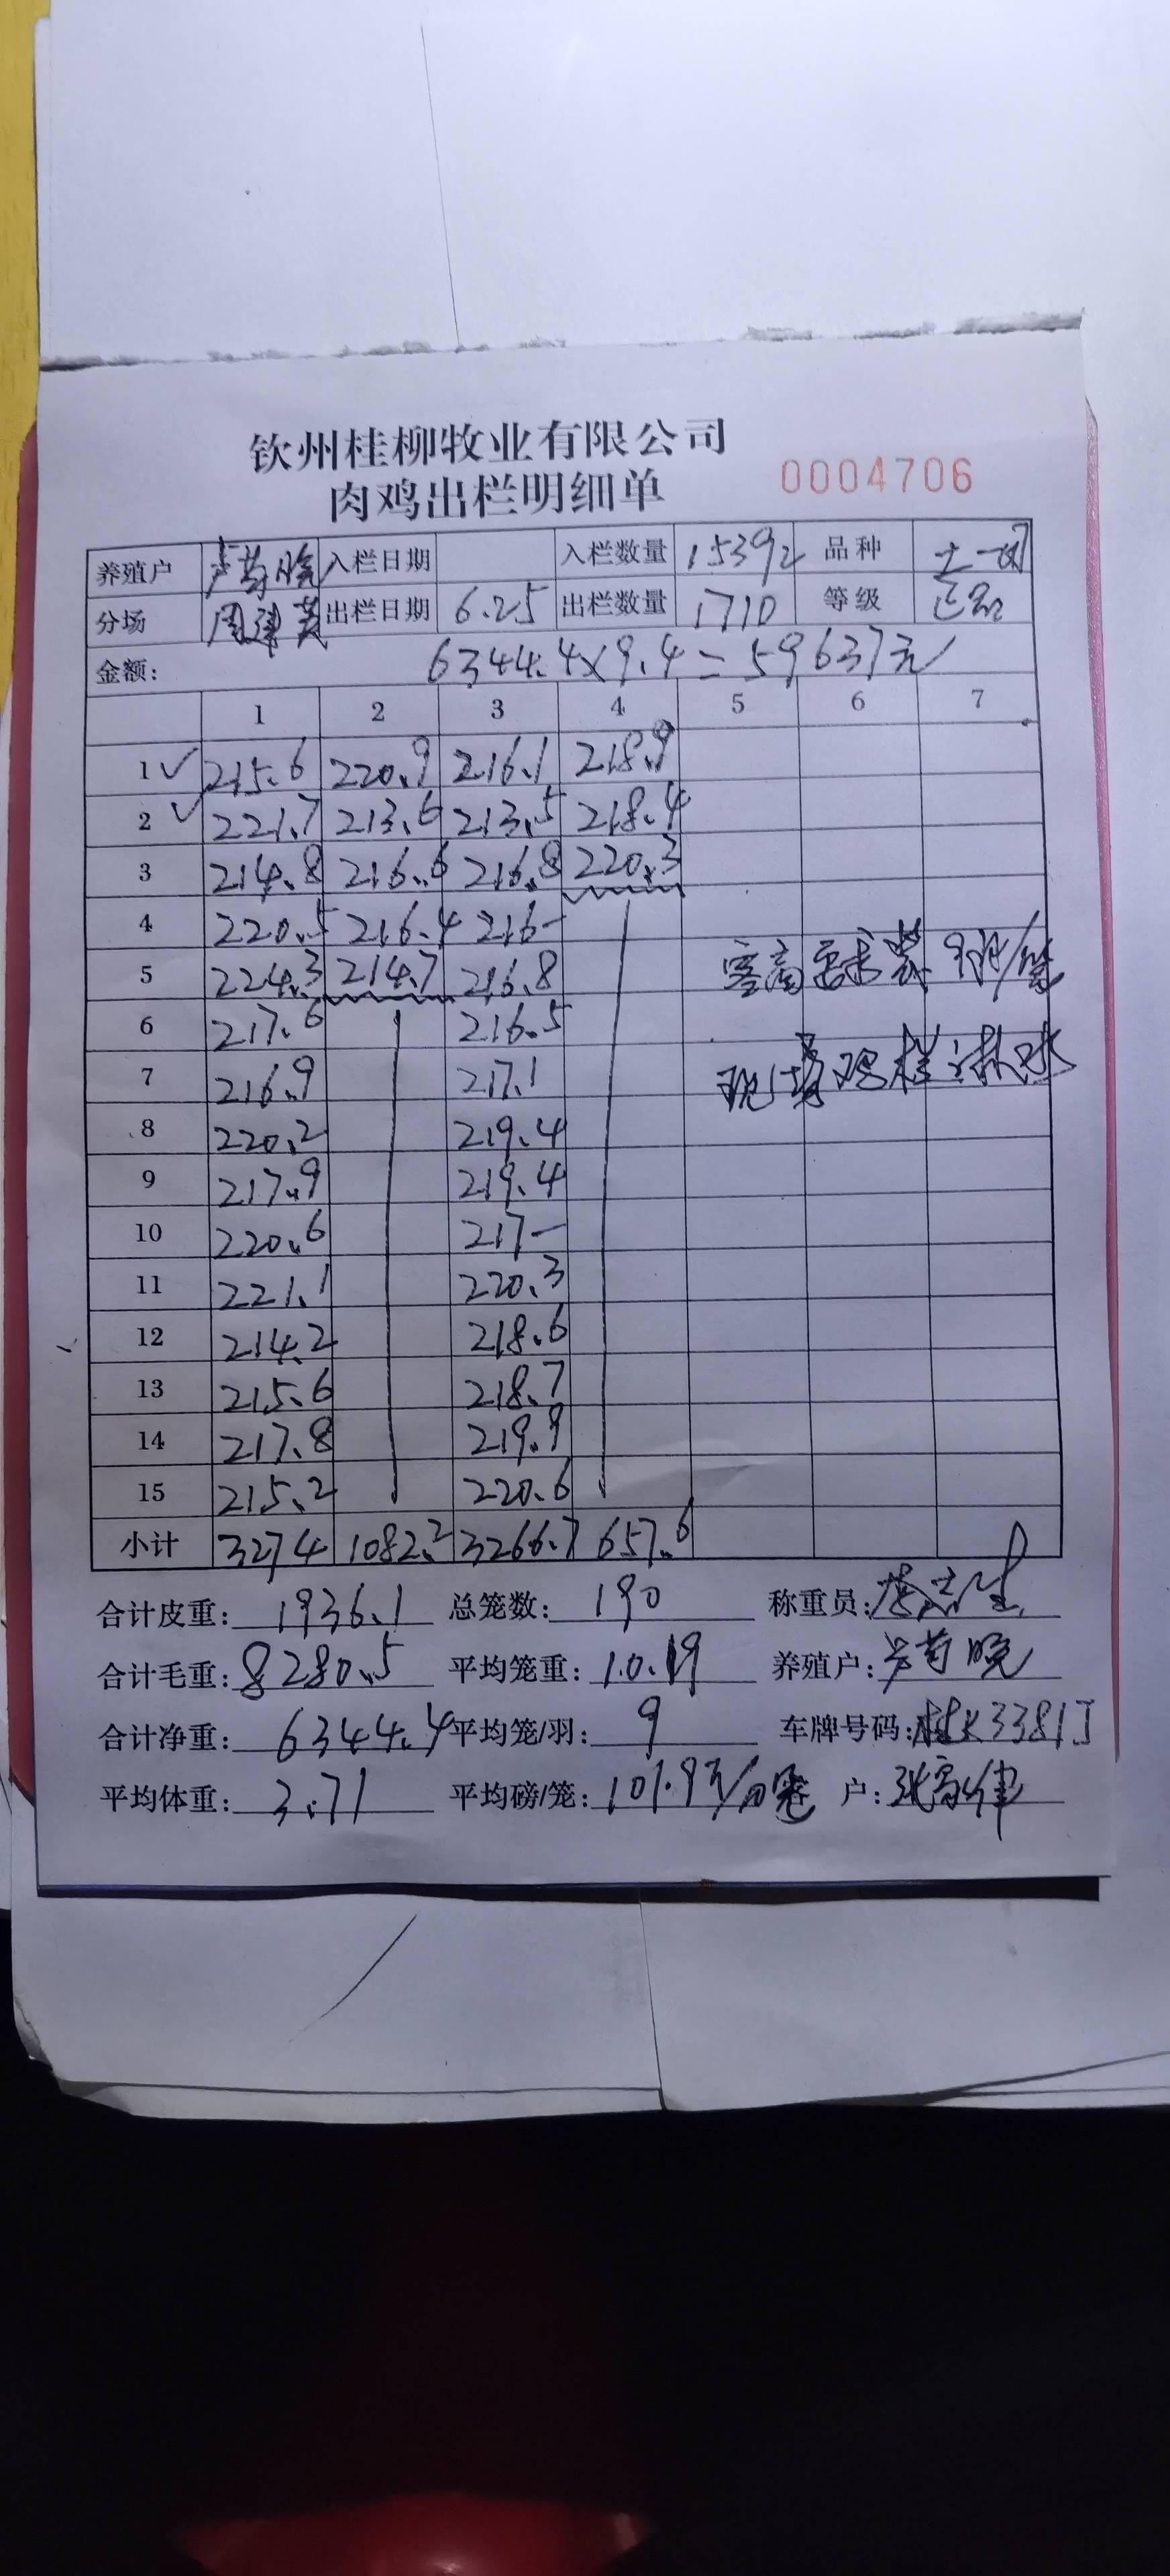 钦州桂柳牧业有限公司
肉鸡出栏明细单 0004706
养殖户 入栏日期 入栏数量 15392 品种 土一
分场 周建英 出栏日期 6.25 出栏数量 1710 等级 正品
金额: 6344.4×9.4=59637元
1 2 3 4 5 6 7
1 ✓ 215.6 220.9 216.1 218.9
2 ✓ 221.7 213.6 213.5 218.4
3 214.8 216.6 216.8 220.3
4 220.5 216.4 216-
5 224.3 214.7 216.8
客商要求装 9只/笼
6 217.6 216.5
7 216.9 217.1
现场鸡样
8 220.2 219.4
9 217.9 219.4
10 220.6 217-
11 221.1 220.3
12 214.2 218.6
13 215.6 218.7
14 217.8 219.9
15 215.2 220.6
小计 3274 1082.2 3266.7 657.6
合计皮重: 1936.1 总笼数: 190 称重员:
合计毛重: 8280.5 平均笼重: 10.19 养殖户:
合计净重: 6344.4 平均笼/羽: 9 车牌号码: 桂K3381J
平均体重: 3.71 平均磅/笼: 101.9 户: 张富伟